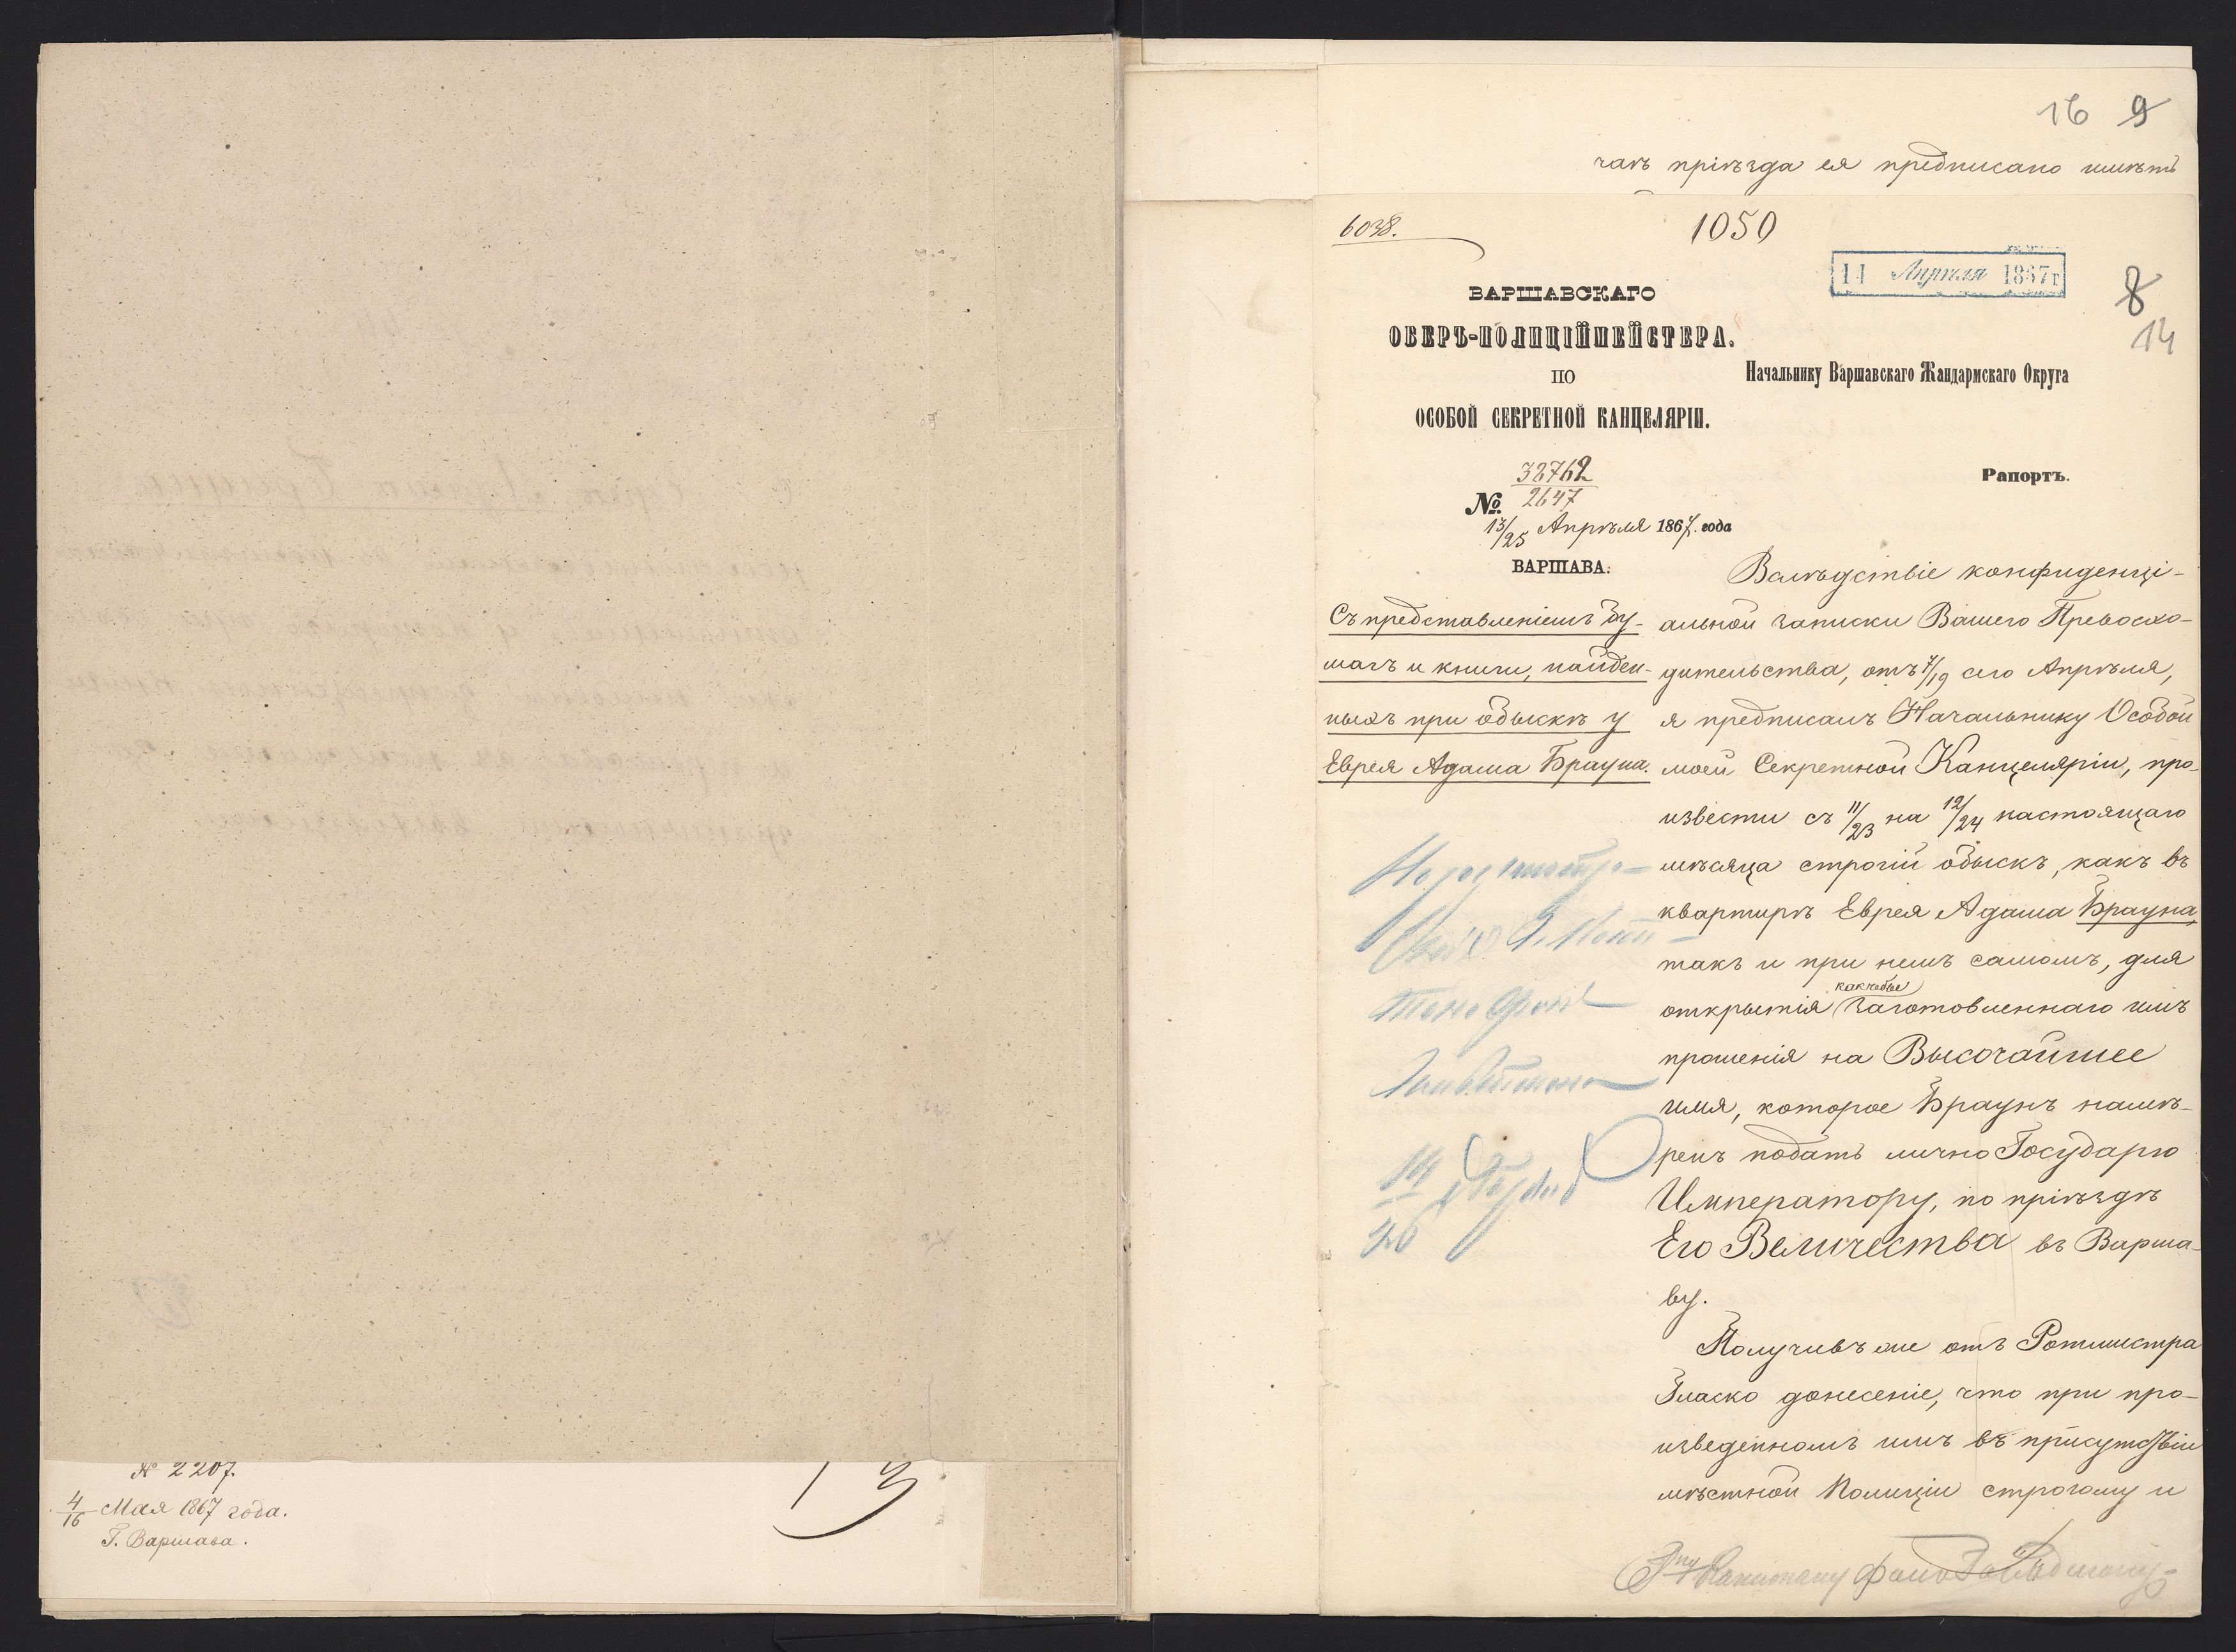 № 2207.
4/16 Мая 1867 года.
Г. Варшава.
16 9
чаѣ пріѣзда ея предписано имѣть
6038.
1050
14 Апрѣля 1867 г
8
14
ВАРШАВСКАГО
ОБЕРЪ-ПОЛИЦІЙМЕЙСТЕРА.
ПО
ОСОБОЙ СЕКРЕТНОЙ КАНЦЕЛЯРІИ.
Начальнику Варшавскаго Жандармскаго Округа
Рапортъ.
№ 38762/2647
13/25 Апрѣля 1867. года
ВАРШАВА.
Съ представленіемъ бу-
магъ и книги, найден-
ныхъ при обыскѣ у
Еврея Адама Брауна.
Вслѣдствіе конфиденці-
альной записки Вашего Превосхо-
дительства, отъ 7/19 сего Апрѣля,
я предписалъ Начальнику Особой
моей Секретной Канцеляріи, про-
извести съ 11/23 на 12/24 настоящаго
мѣсяца строгій обыскъ, какъ въ
квартирѣ Еврея Адама Брауна,
такъ и при немъ самомъ, для
открытія какъ бы заготовленнаго имъ
прошенія на Высочайшее
имя, которое Браунъ намѣ-
ренъ подать лично Государю
Императору, по пріѣздѣ
Его Величества въ Варша-
ву.
Получивъ же отъ Ротмистра
Власко донесеніе, что при про-
изведенномъ имъ въ присутствіи
мѣстной Полиціи строгому и
Капитану фонъ